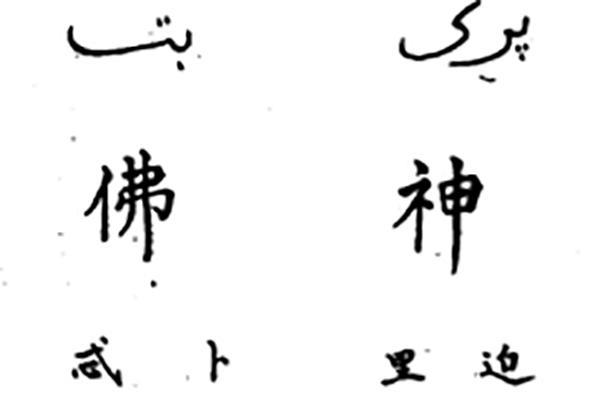 پری بت
神 佛
迫里 卜忒